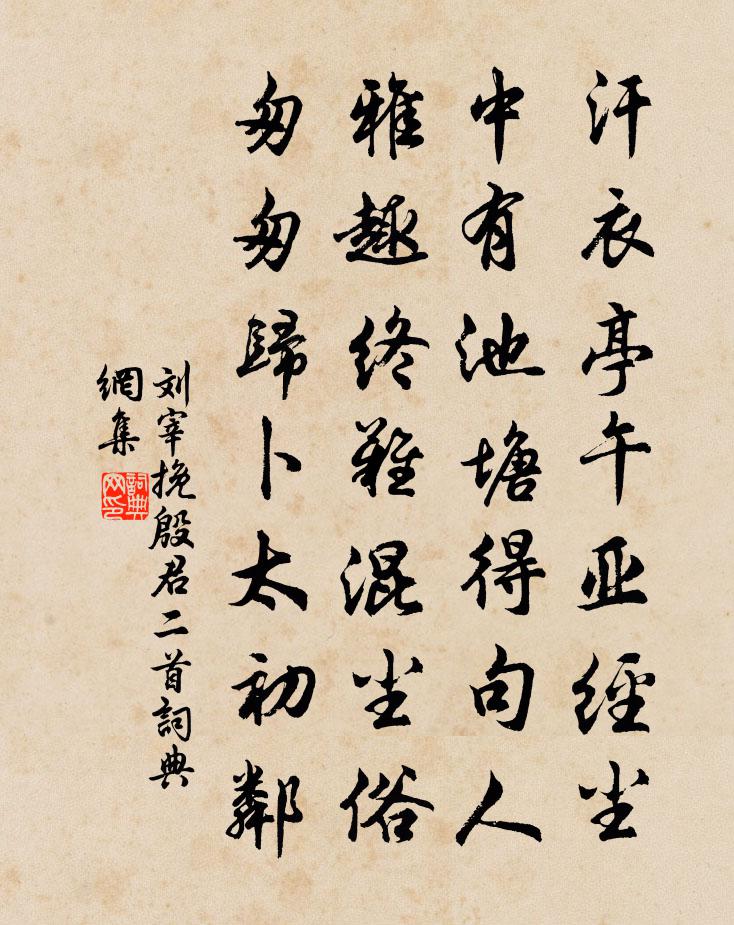 汗衣亭午亚經尘
中有池塘得句人
雅趣终難混尘俗
匆匆歸卜太初鄰
刘宰挽殷君二首詞典
網集
詞典
网印